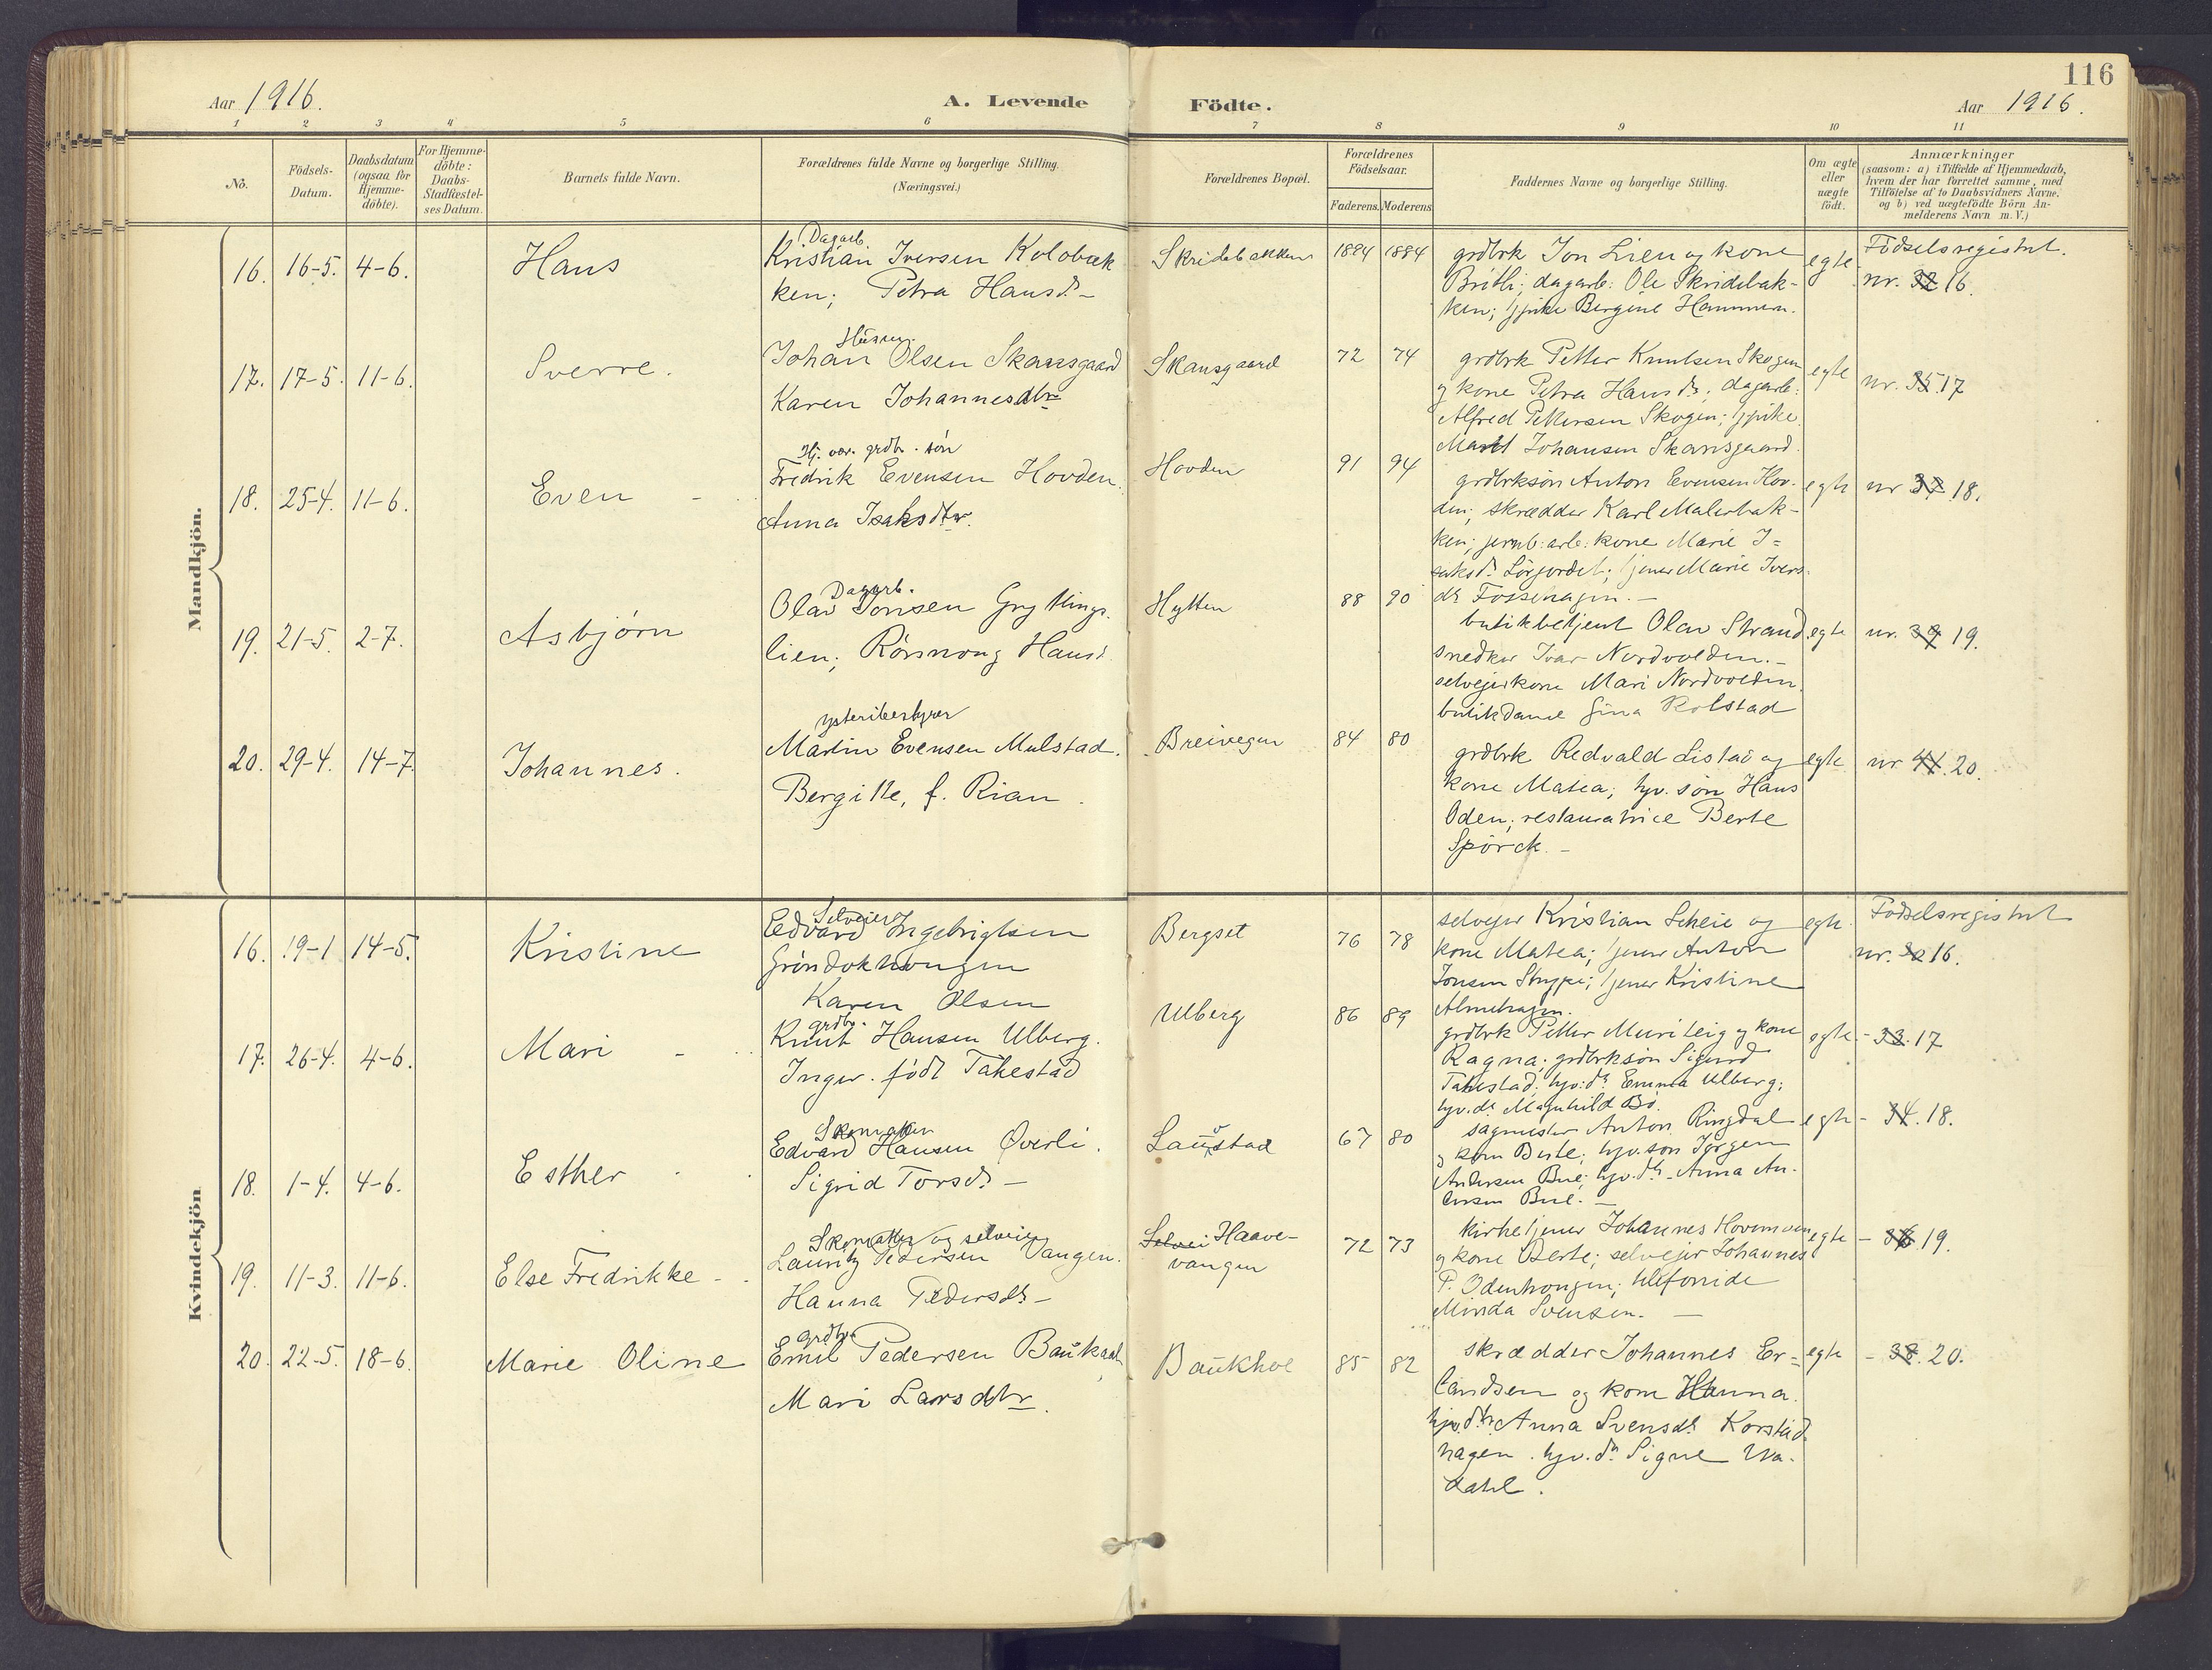 116
Aar 1916.
A. Levende Födte.
Aar 1916.
1 2 3 4 5 6 7 8 9 10 11
No.
Födsels-
Datum.
Daabsdatum
(ogsaa for
Hjemme-
döbte).
For Hjemme-
döbte:
Daabs-
Stadfæstel-
ses Datum.
Barnets fulde Navn.
Forældrenes fulde Navne og borgerlige Stilling.
(Næringsvei.)
Forældrenes Bopæl.
Forældrenes
Födselsaar.
Faderens. Moderens
Faddernes Navne og borgerlige Stilling.
Om ægte
eller
uægte
födt.
Anmærkninger
(saasom: a) i Tilfælde af Hjemmedaab,
hvem der har forrettet samme, med
Tilföielse af to Daabsvidners Navne,
og b) ved uægtefödte Börn An-
melderens Navn m. V.)
Mandkjön.
16. 16-5. 4-6. Hans
Dagarb.
Kristian Iversen Kolobæk
ken; Petra Hansd.
Skridebakken 1884 1884
grdbrk Jon Lien og kone
Brithi; dagarb: Ole Skridebak-
ken; pike Bergine Hammern.
egte
Födselsregistret.
nr. 32 16.
17. 17-5. 11-6. Sverre.
Husm.
Johan Olsen Skansgaard
Karen Johannesdtr
Skansgaard 72 74
grdbrk Petter Knutsen Skogen
og kone Petra Hansdr; dagarb:
Alfred Pettersen Skogen; pike
Marit Johansen Skansgaard.
egte nr. 35 17
18. 25-4. 11-6. Even
Hj. vær. grdbr. sön
Fredrik Evensen Hovden.
Anna Isaksdtr.
Hovden 91 94
grdbrksön Anton Evensen Hov-
den; skrædder Karl Malerbak-
ken; jernb: arb: kone Marie I-
saksdr Lörjordet; tjener Marie Ivers-
dr Fossehagen.
egte nr 37 18.
19. 21-5. 2-7. Asbjörn
Dagarb.
Olav Jonsen Gryttings-
lien; Rönnoug Hansd.
Hytten 88 90
butikbetjent Olav Strand
snedker Ivar Nordvolden.
selveierkone Mari Nordvolden.
butikdame Gina Rolstad
egte nr. 39 19.
20. 29-4. 14-7. Johannes.
ysteribestyrer
Martin Evensen Mulstad.
Bergitte, f. Rian.
Breivegen 84 80
grdbrk Redvald Listad og
kone Matea; hjv. sön Hans
Oden; restauratrice Berte
Spörck.
egte nr 44. 20.
Kvindekjön
16. 19-1 14-5. Kristine
Selveier
Edvard Ingebrigtsen
Gröndokhaugen
Karen Olsen
Bergset 76 78
selvejer Kristian Scheie og
kone Matea; tjener Anton
Jonsen Strype; tjener Kristine
Almehagen.
egte.
Födselsregistret
nr. 30 16.
17. 26-4. 4-6. Mari
grdbr.
Knut Hansen Ulberg.
Inger. födt Takestad
Ulberg 86 89
grdbrk Petter Muriteig og kone
Ragna; grdbrksön Sigurd
Takestad; hjv: dr Emma Ulberg;
hjv. dr Magnhild Bö.
egte - 33. 17
18. 1-4. 4-6. Esther
Skomaker
Edvard Hansen Överli.
Sigrid Torsdr
Laustad 67 80
sagmester Anton Ringdal
og kone Berte; hjv. sön Jörgen
Andersen Bue; hjv. dtr. Anna An-
dersen Bue.
egte - 34. 18.
19. 11-3. 11-6. Else Fredrikke
Skomaker og selveier
Lauritz Pedersen Vangen.
Hanna Pedersdr
Selvei Haave-
vangen 72 73
kirketjener Johannes Hovemoen
og kone Berte; selvejer Johannes
P. Odenhongen; telefonide
Minda Svensen.
egte - 36 19.
20. 22-5. 18-6. Marie Oline
grdbr.
Emil Pedersen Baukhol
Mari Larsdtr.
Baukhol 85 82
skrædder Johannes Er-
landsen og kone Hanna.
hjv. dtr Anna Svensdr Korstad-
hagen. hjv. dr Signe Wa-
dahl.
egte - 38. 20.